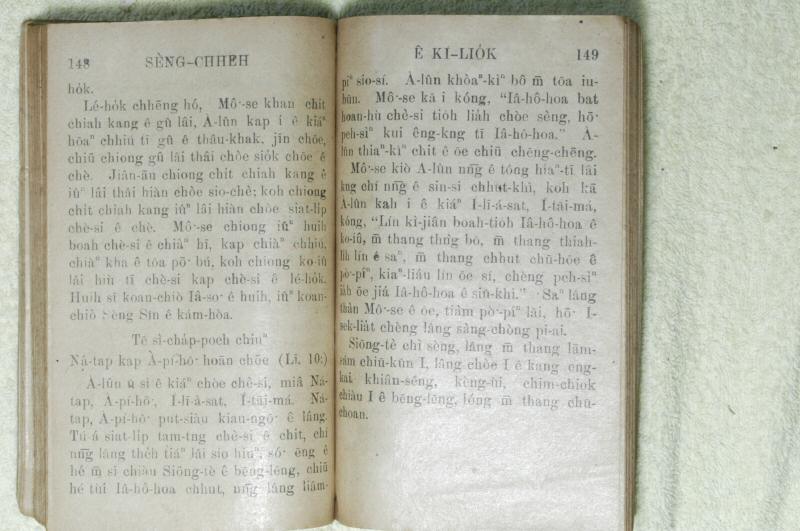 148 SÈNG-CHHEH
hók.
Lé-hók chhēng hó, Mô͘-se khan chit
chiah kang ê gû lâi, A-lûn kap i ê kiáⁿ
hōaⁿ chhiú tī gû ê thâu-khak, jīn chōe,
chiū chiong gû lâi thâi chòe sio̍k chōe ê
chè. Jiân-āu chiong chit chiah kang ê
iûⁿ lâi thâi hiàn chòe sio-chè; koh chiong
chit chiah kang iûⁿ lâi hiàn chòe siat-li̍p
chè-si ê chè. Mô͘-se chiong iûⁿ huih
boah chè-si ê chiàⁿ hī, kap chiàⁿ chhiú,
chiàⁿ kha ê tōa pō͘ bú, koh chiong ko-iû
lâi hiù tī chè-si kap chè-si ê lé-ho̍k.
Huih sī koan-chiò Iâ-so͘ ê huih, iûⁿ koan-
chiò Sèng Sîn ê kám-hòa.
Tē sì-cha̍p-poeh chiuⁿ
Ná-tap kap À-pí-hō͘ hoān chōe (Lī. 10:)
A-lûn ū sì ê kiáⁿ chòe chè-si, miâ Ná-
tap, À-pí-hō͘, Í-lī-à-sat, Í-tāi-má. Ná-
tap, À-pí-hō͘ put-siàu kiau-ngō͘ ê lâng.
Tú-á siat-li̍p tam-tng chè-si ê chit, chí
nn̄g lâng the̍h tiáⁿ lâi sio hiuⁿ, só͘ ēng ê
hé m̄ sī chiàu Siōng-tè ê bēng-lēng, chiū
hé tùi Iâ-hô-hoa chhut, nn̄g lâng liâm-
Ê KÌ-LIO̍K 149
piⁿ sio-sí. À-lûn khòaⁿ-kìⁿ bô m̄ tōa iu-
būn. Mô͘-se kā i kóng, “Iâ-hô-hoa bat
hoan-hù chè-si tio̍h lia̍h chòe sèng, hō͘
peh-sìⁿ kui êng-kng tī Iâ-hô-hoa.” À-
lûn thiaⁿ-kìⁿ chit ê ōe chiū chēng-chēng.
Mô͘-se kiò A-lûn nn̄g ê tông hiaⁿ-tī lâi
kng chí nn̄g ê sin-si chhut-khì, koh kā
A-lûn kah i ê kiáⁿ Í-lī-á-sat, Í-tāi-má,
kóng, “Lín kì-jiân boah-tio̍h Iâ-hô-hoa ê
ko-iû, m̄ thang thǹg bō, m̄ thang thiah-
li̍h lín ê saⁿ, m̄ thang chhut chū-hōe ê
pò͘-piⁿ, kiaⁿ-liáu lín ōe sí, chèng peh-sìⁿ
iah ōe jiá Iâ-hô-hoa ê siū-khì.” Saⁿ lâng
thàn Mô͘-se ê ōe, tiàm pò͘-pîⁿ lāi, hō͘ Í-
sek-lia̍t chèng lâng sàng-chòng pi-ai.
Siōng-tè chì sèng, lâng m̄ thang lām-
sám chiū-kūn I, lâng chòe I ê kang eng-
kai khiân-sêng, kèng-ùi, chim-chiok
chiàu I ê bēng-lēng, lóng m̄ thang chū-
choan.